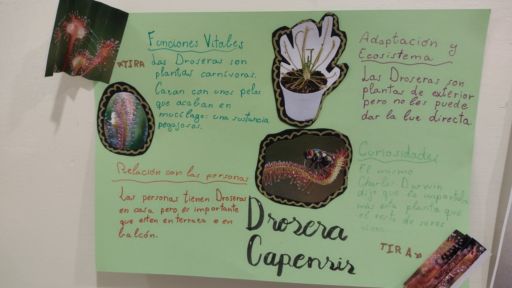 TIRA
Funciones Vitales
Las Droseras son
plantas carnívoras.
Cazan con unos pelos
que acaban en
mucílago: una sustancia
pegajosa.
Adaptación y
Ecosistema
Las Droseras son
plantas de exterior
pero no les puede
dar la luz directa
Relación con las personas
Las personas tienen Droseras
en casa pero es importante
que esten en terraza o en
balcón.
Curiosidades
El mismo
Charles Darwin
dijo que le importaba
más esta planta que
el resto de seres
Drosera
Capensis
TIRA